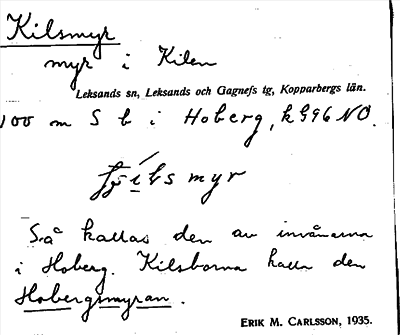 Kilsmyr
myr i Kilen
Leksands sn, Leksands och Gagnefs tg, Kopparbergs län.
100 m S b i Hoberg, k 996 NO.
myr
Så kallas den av invånarna
i Hoberg. Kilsborna kalla den
Hobergsmyran.
ERIK M. CARLSSON, 1935.